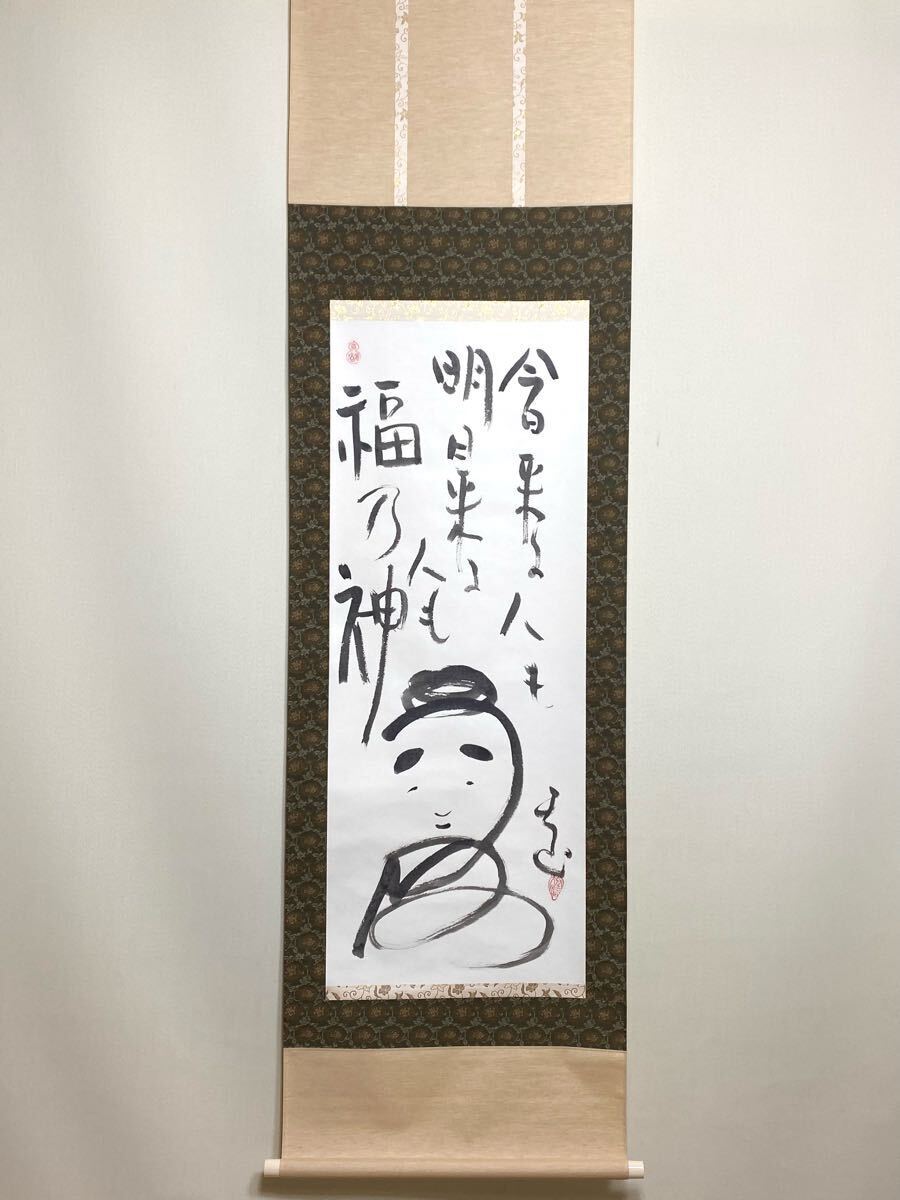 今日来る人も
明日来る
人も
福乃神